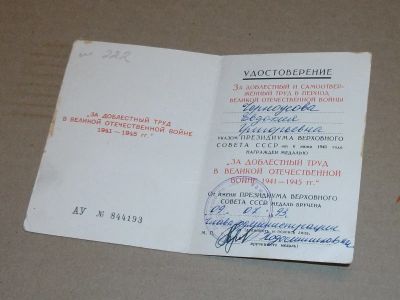 ш 222
„ЗА ДОБЛЕСТНЫЙ ТРУД
В ВЕЛИКОЙ ОТЕЧЕСТВЕННОЙ ВОЙНЕ
1941—1945 гг.“
АУ № 844193
УДОСТОВЕРЕНИЕ
ЗА ДОБЛЕСТНЫЙ И САМООТВЕР-
ЖЕННЫЙ ТРУД В ПЕРИОД
ВЕЛИКОЙ ОТЕЧЕСТВЕННОЙ ВОЙНЫ
Черноусова
Евдокия
Григорьевна
УКАЗОМ ПРЕЗИДИУМА ВЕРХОВНОГО
СОВЕТА СССР от 6 июня 1945 года
НАГРАЖДЕН МЕДАЛЬЮ
„ЗА ДОБЛЕСТНЫЙ ТРУД
В ВЕЛИКОЙ ОТЕЧЕСТВЕННОЙ
ВОЙНЕ 1941—1945 гг.“
От имени ПРЕЗИДИУМА ВЕРХОВНОГО
СОВЕТА СССР МЕДАЛЬ ВРУЧЕНА
09. 93
Глава администрации
М. П.